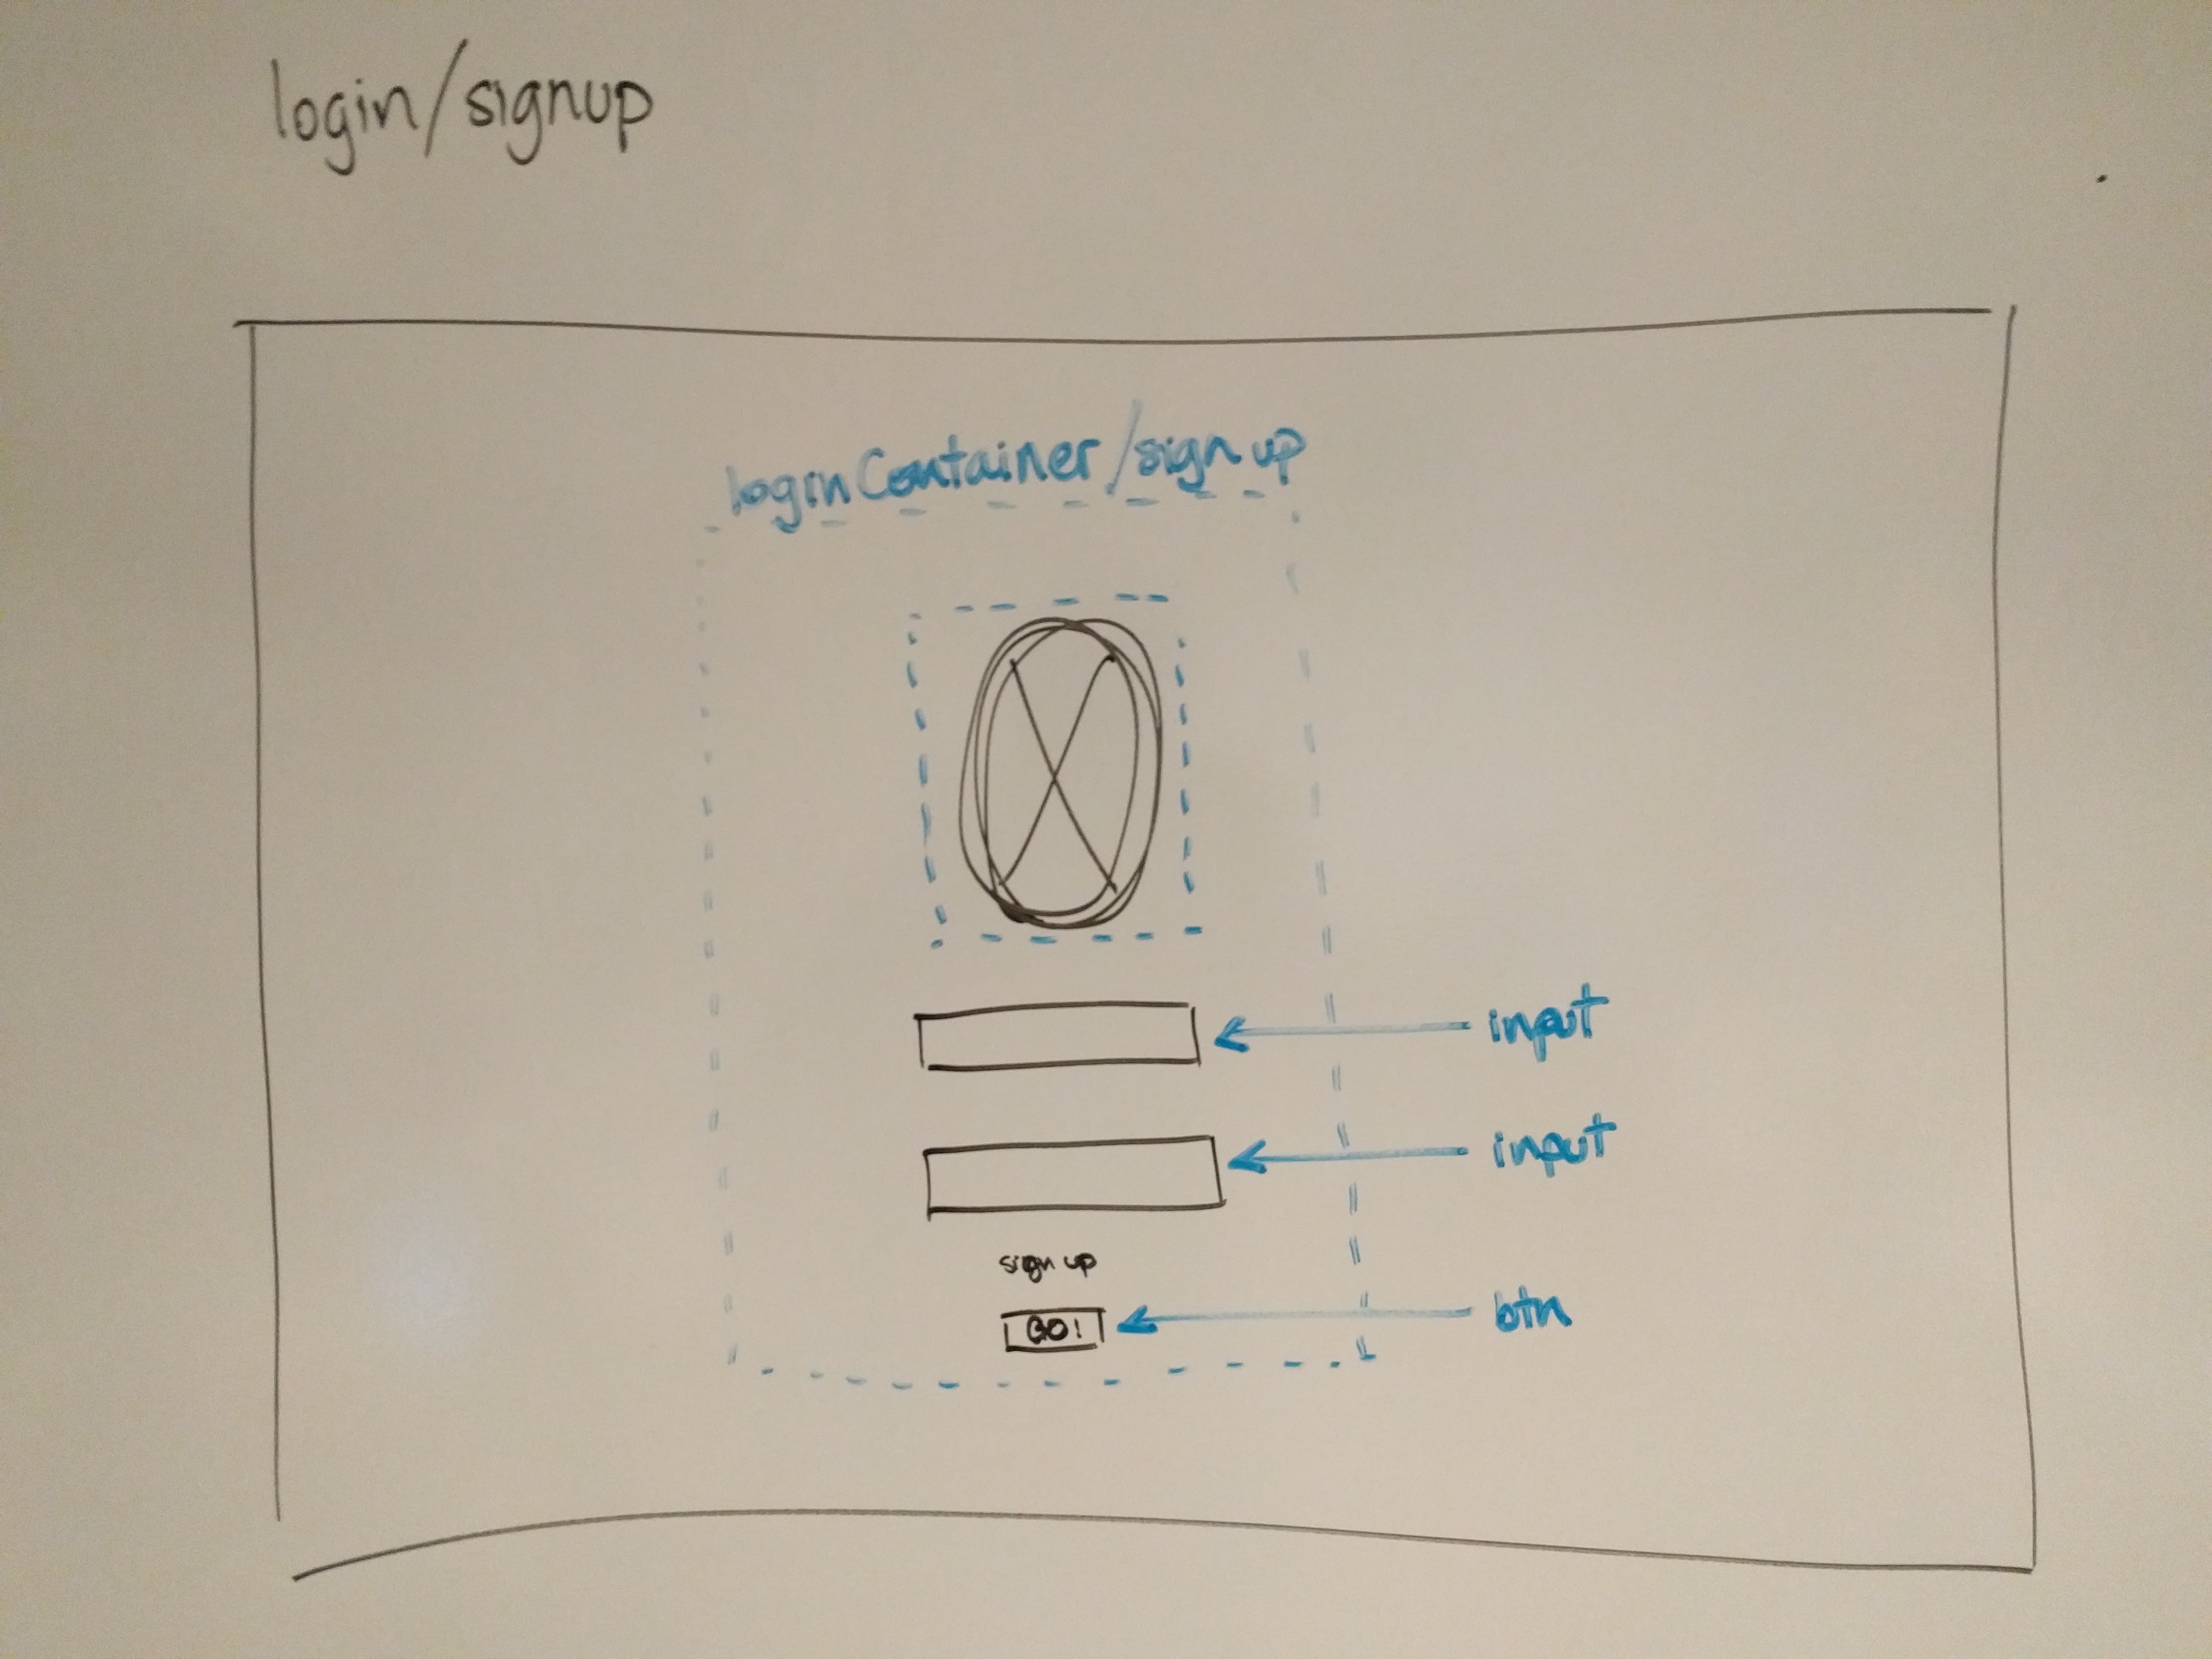 login/signup
loginContainer/signup
input
input
sign up
GO!
btn